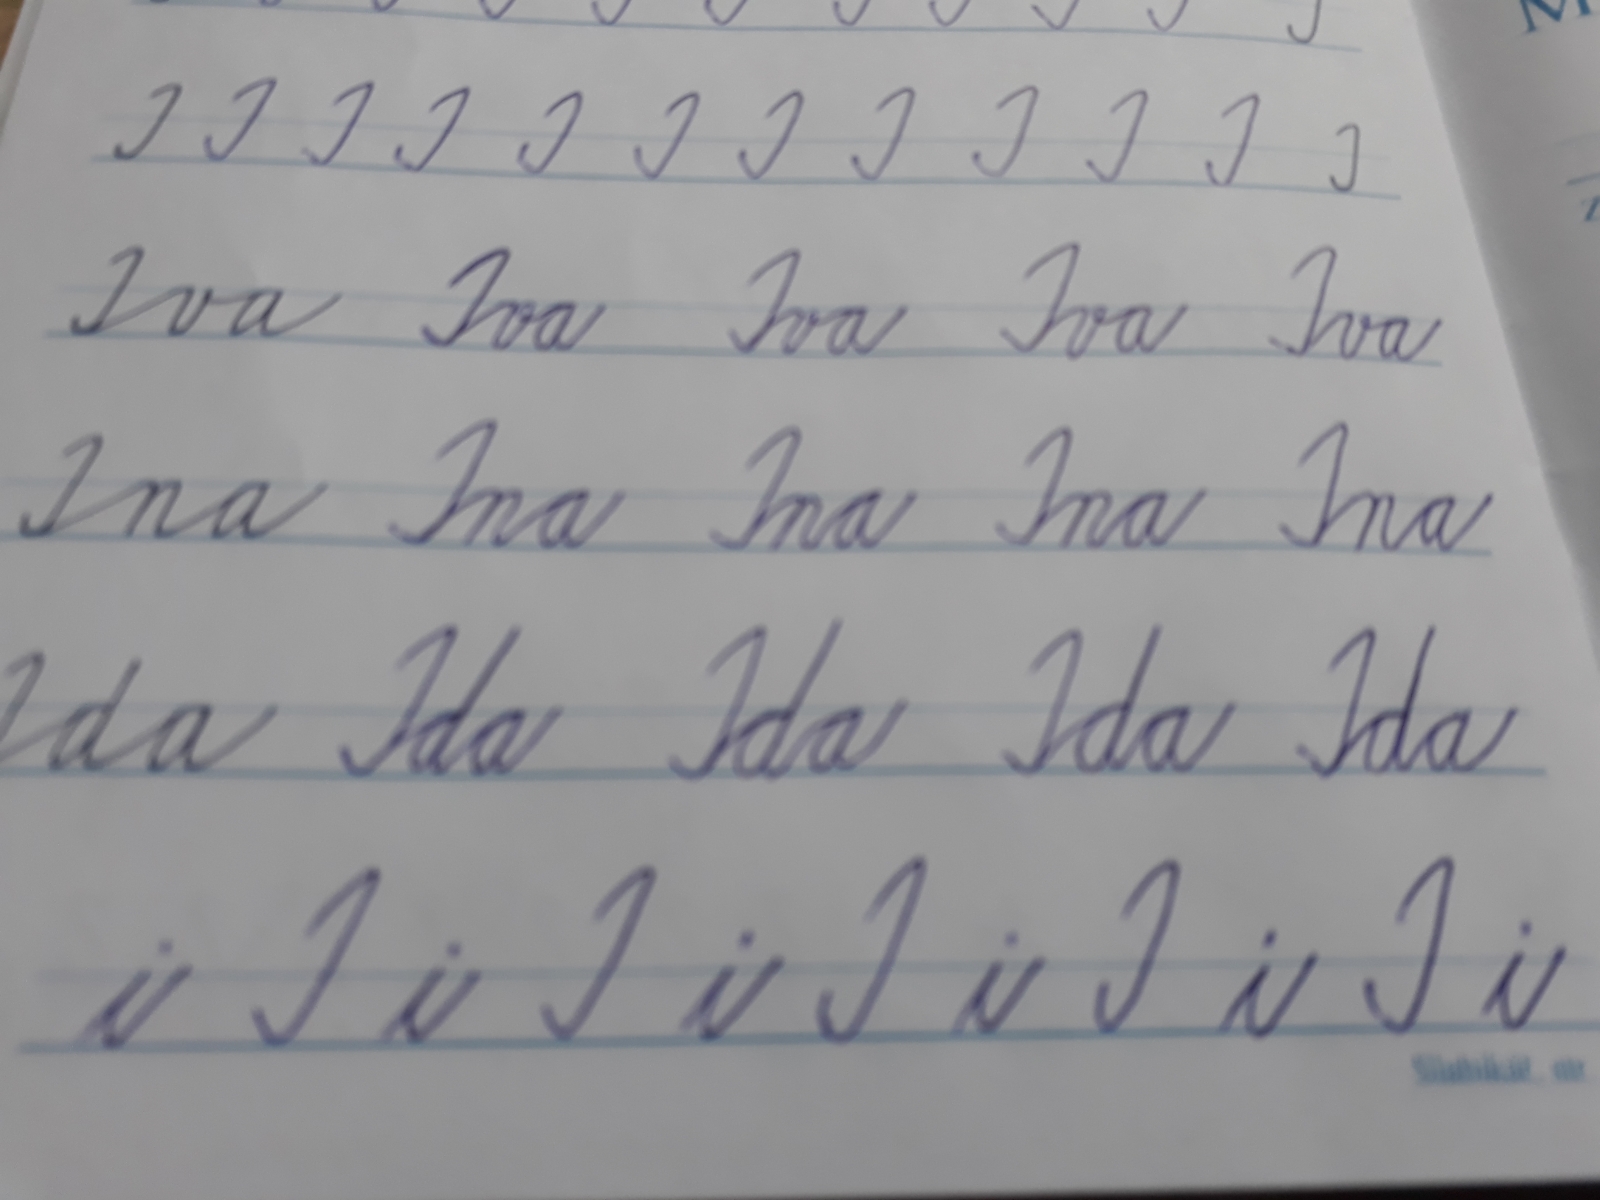 I I I I I I I I I I I I
Iva Iva Iva Iva Iva
Ina Ina Ina Ina Ina
Ida Ida Ida Ida Ida
i I i I i I i I i I i